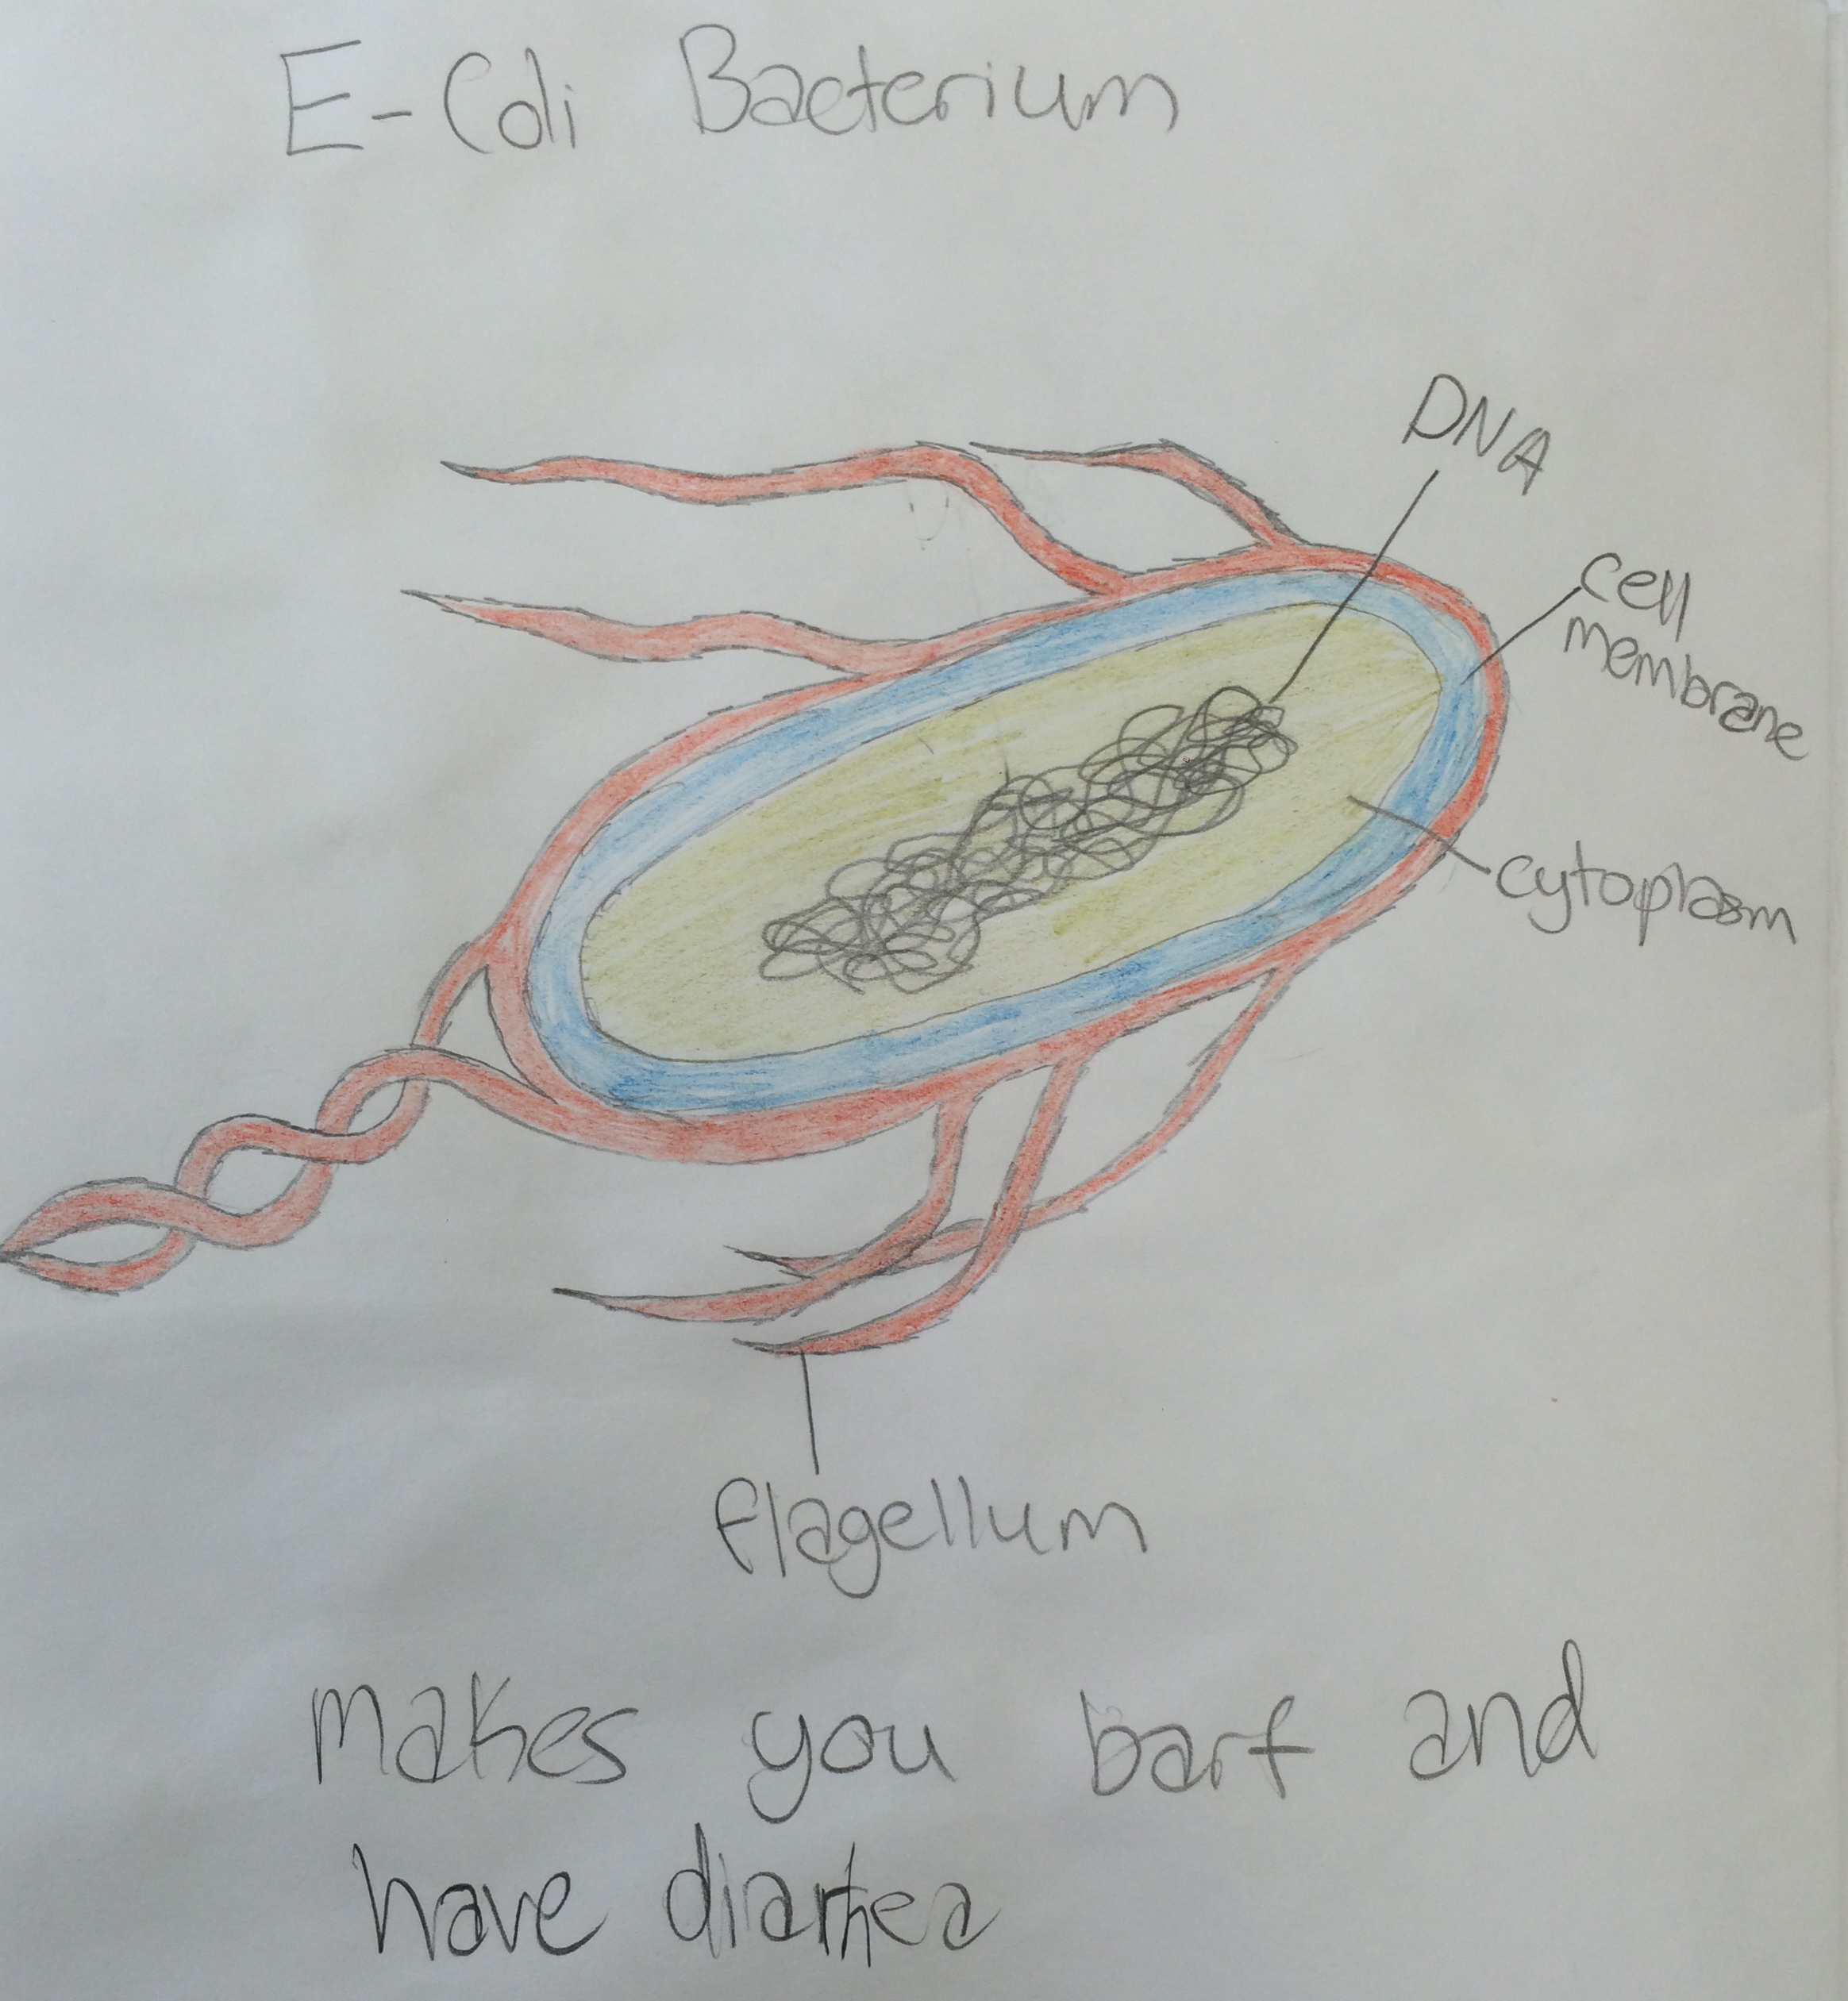 E-Coli Bacterium
DNA
cell
membrane
cytoplasm
flagellum
makes you barf and
have diarhea